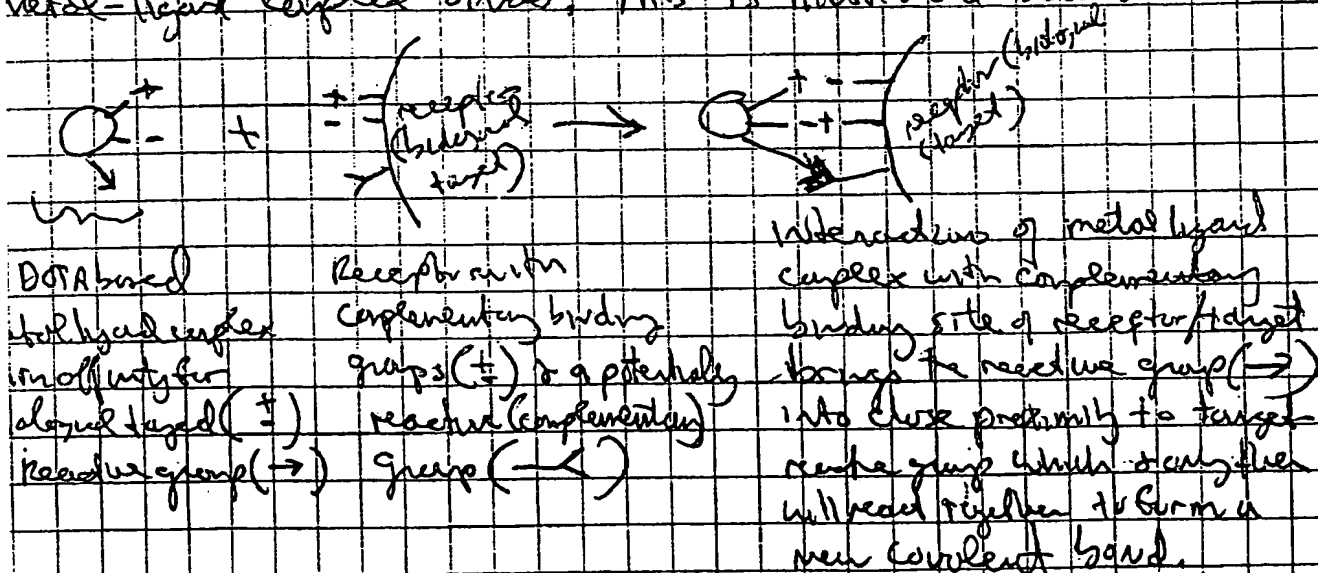 metal-ligand complex binds. This is
+
-
+
+
-
receptor
(biological
target)
+ -
- +
receptor (biological
target)
DOTA based
ligand complex
affinity for
target (±)
reactive group (→)
Receptor with
complementary binding
groups (±) & a potentially
reactive (complementary)
group
interactions of metal ligand
complex with complementary
binding site of receptor/target
brings the reactive group (→)
into close proximity to target
group which
will react together to form a
new covalent bond.